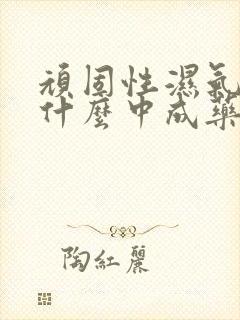 頑固性濕氣
什麼中成藥
陶紅麗